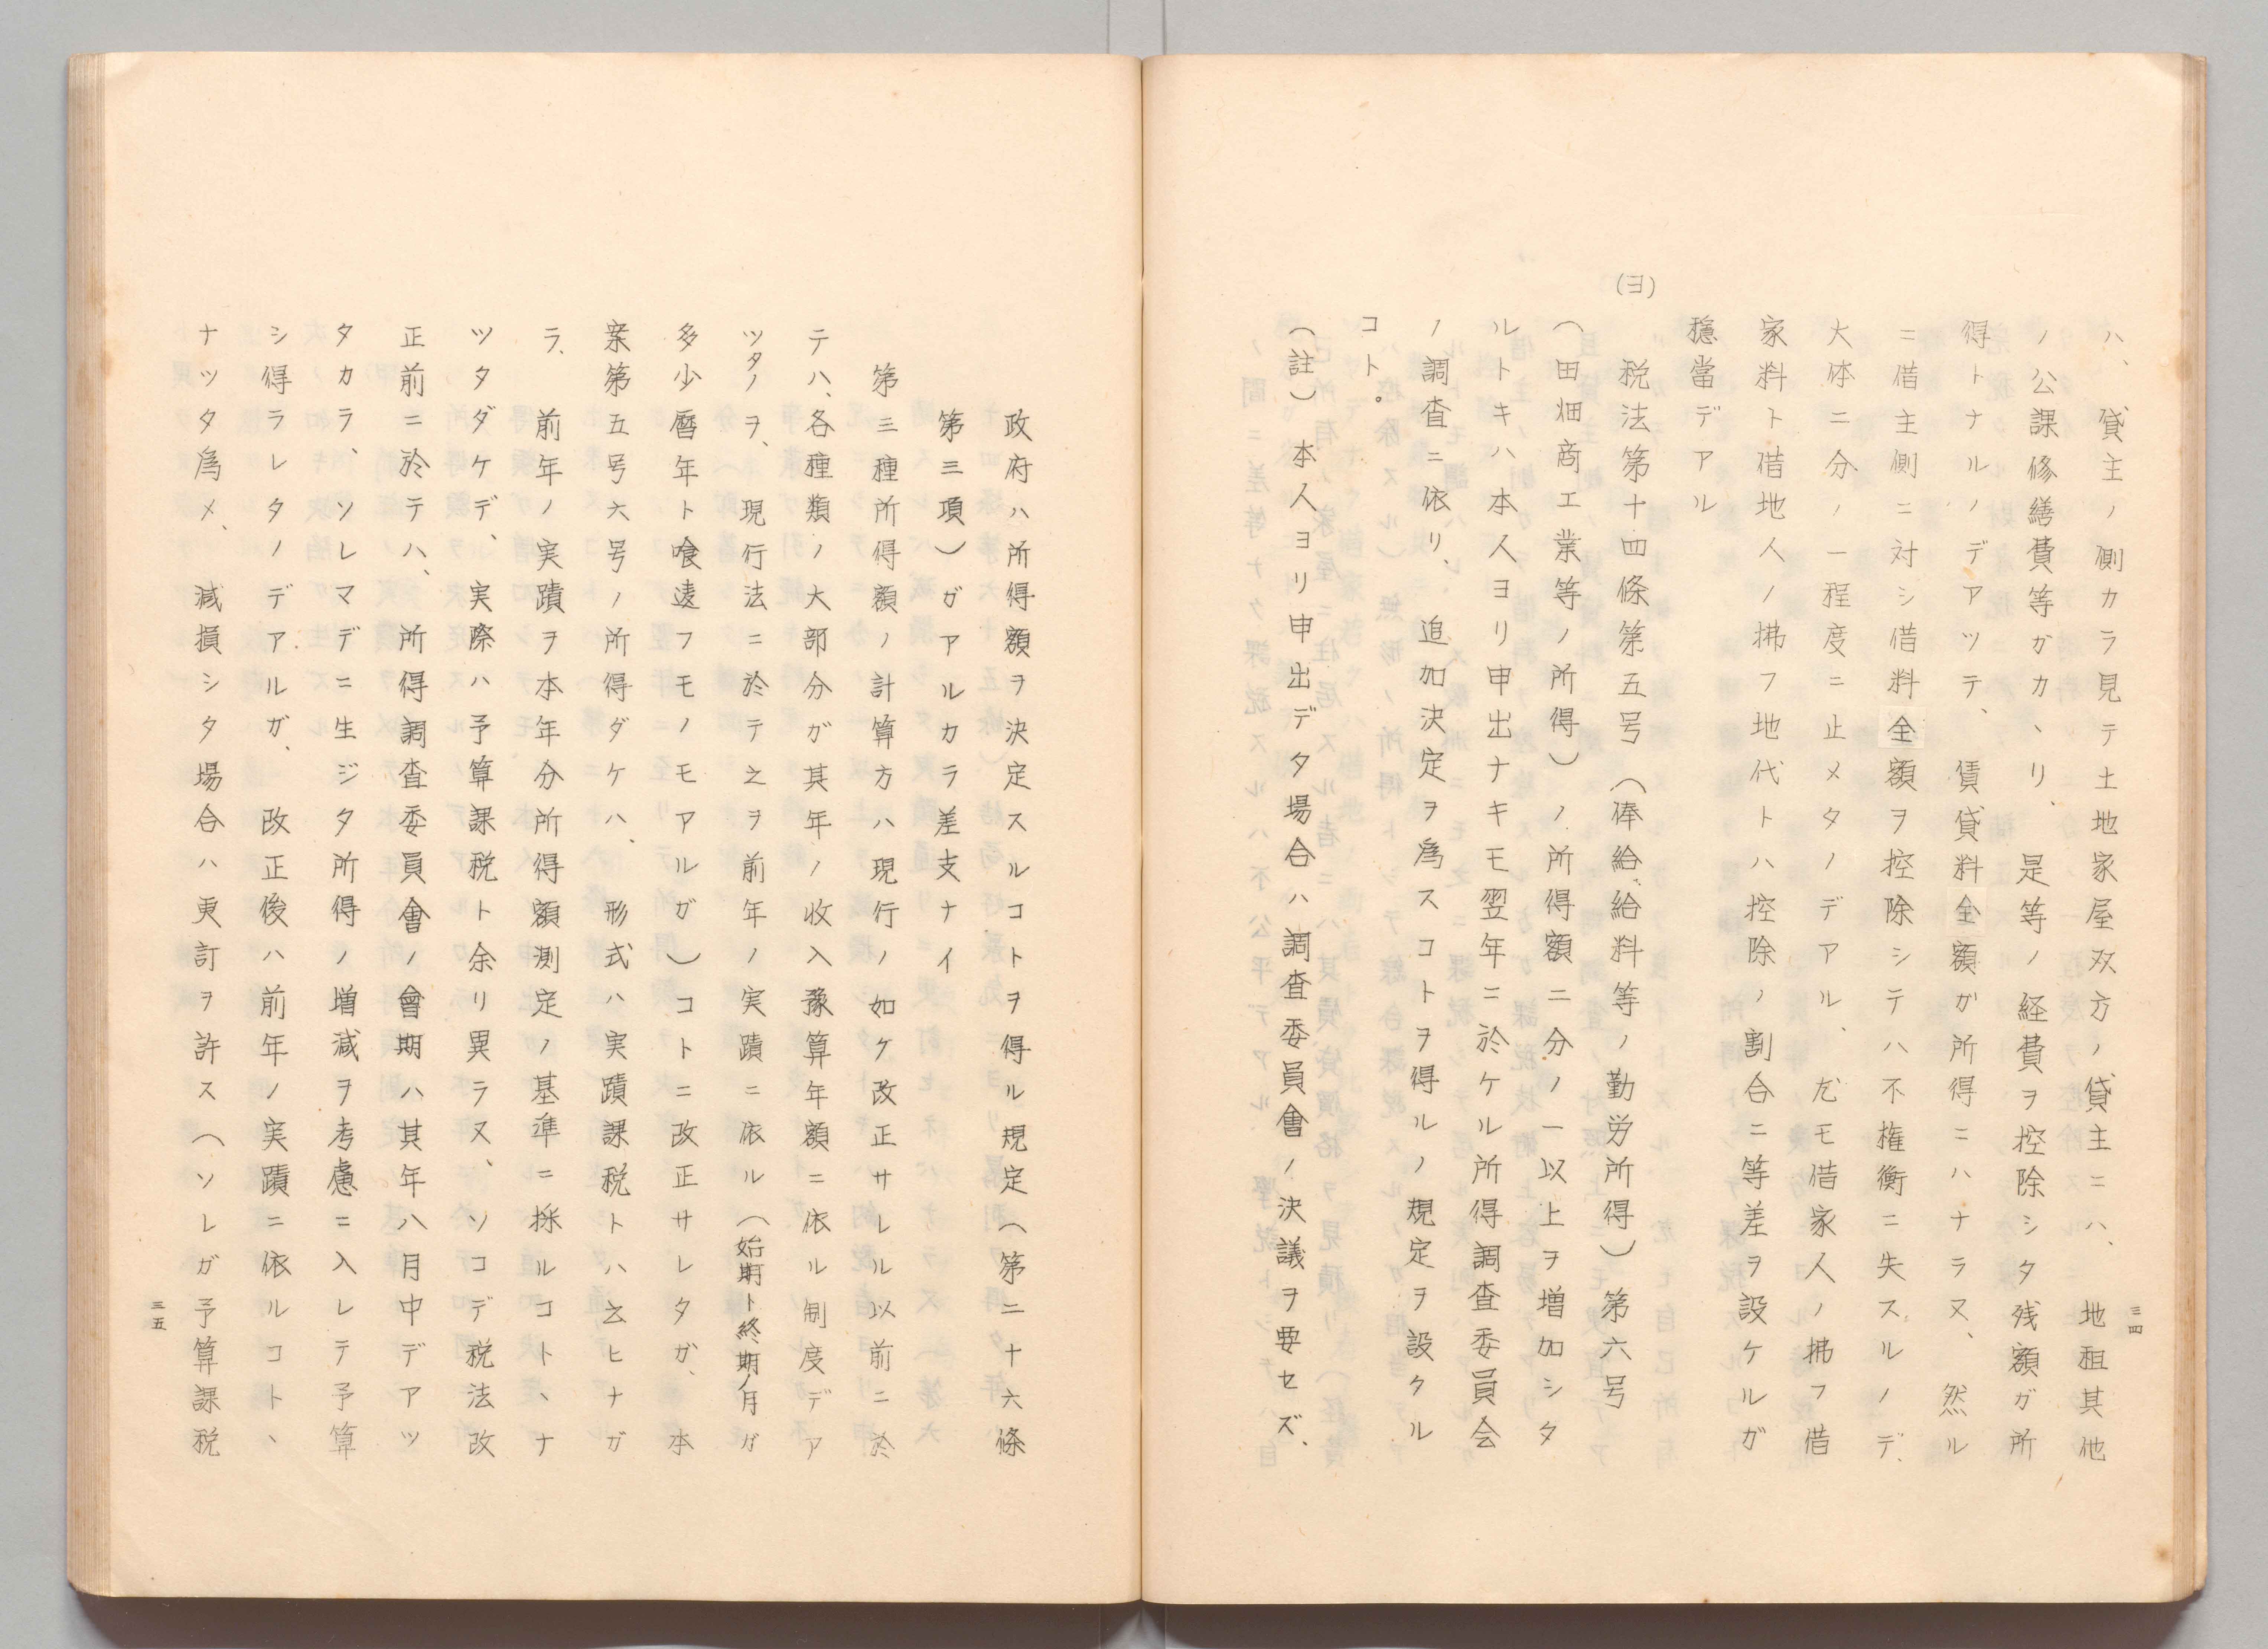 三四
ハ、貸主ノ側カラ見テ土地家屋双方ノ貸主ニハ、地租其他
ノ公課修繕費等ガカヽリ、是等ノ経費ヲ控除シタ残額ガ所
得トナルノデアツテ、賃貸料全額ガ所得ニハナラヌ、然ル
ニ借主側ニ対シ借料全額ヲ控除シテハ不権衡ニ失スルノデ、
大体ニ分ノ一程度ニ止メタノデアル、尤モ借家人ノ拂フ借
家料ト借地人ノ拂フ地代トハ控除ノ割合ニ等差ヲ設ケルガ
穏當デアル
(ヨ)
税法第十四條第五号(俸給給料等ノ勤労所得)第六号
(田畑商工業等ノ所得)ノ所得額二分ノ一以上ヲ増加シタ
ルトキハ本人ヨリ申出ナキモ翌年ニ於ケル所得調査委員会
ノ調査ニ依リ、追加決定ヲ為スコトヲ得ルノ規定ヲ設クル
コト。
(註)本人ヨリ申出デタ場合ハ調査委員會ノ決議ヲ要セズ、
政府ハ所得額ヲ決定スルコトヲ得ル規定(第二十六條
第三項)ガアルカラ差支ナイ
第三種所得額ノ計算方ハ現行ノ如ク改正サレル以前ニ於
テハ、各種類ノ大部分ガ其年ノ收入豫算年額ニ依ル制度デア
ツタノヲ、現行法ニ於テ之ヲ前年ノ実蹟ニ依ル(始期ト終期ノ月ガ
多少暦年ト喰違フモノモアルガ)コトニ改正サレタガ、本
案第五号六号ノ所得ダケハ、形式ハ実蹟課税トハ云ヒナガ
ラ、前年ノ実蹟ヲ本年分所得額測定ノ基準ニ採ルコトヽナ
ツタダケデ、実際ハ予算課税ト余リ異ラヌ、ソコデ税法改
正前ニ於テハ、所得調査委員會ノ會期ハ其年八月中デアツ
タカラ、ソレマデニ生ジタ所得ノ増減ヲ考慮ニ入レテ予算
シ得ラレタノデアルガ、改正後ハ前年ノ実蹟ニ依ルコトヽ
ナツタ為メ、減損シタ場合ハ更訂ヲ許ス(ソレガ予算課税
三五